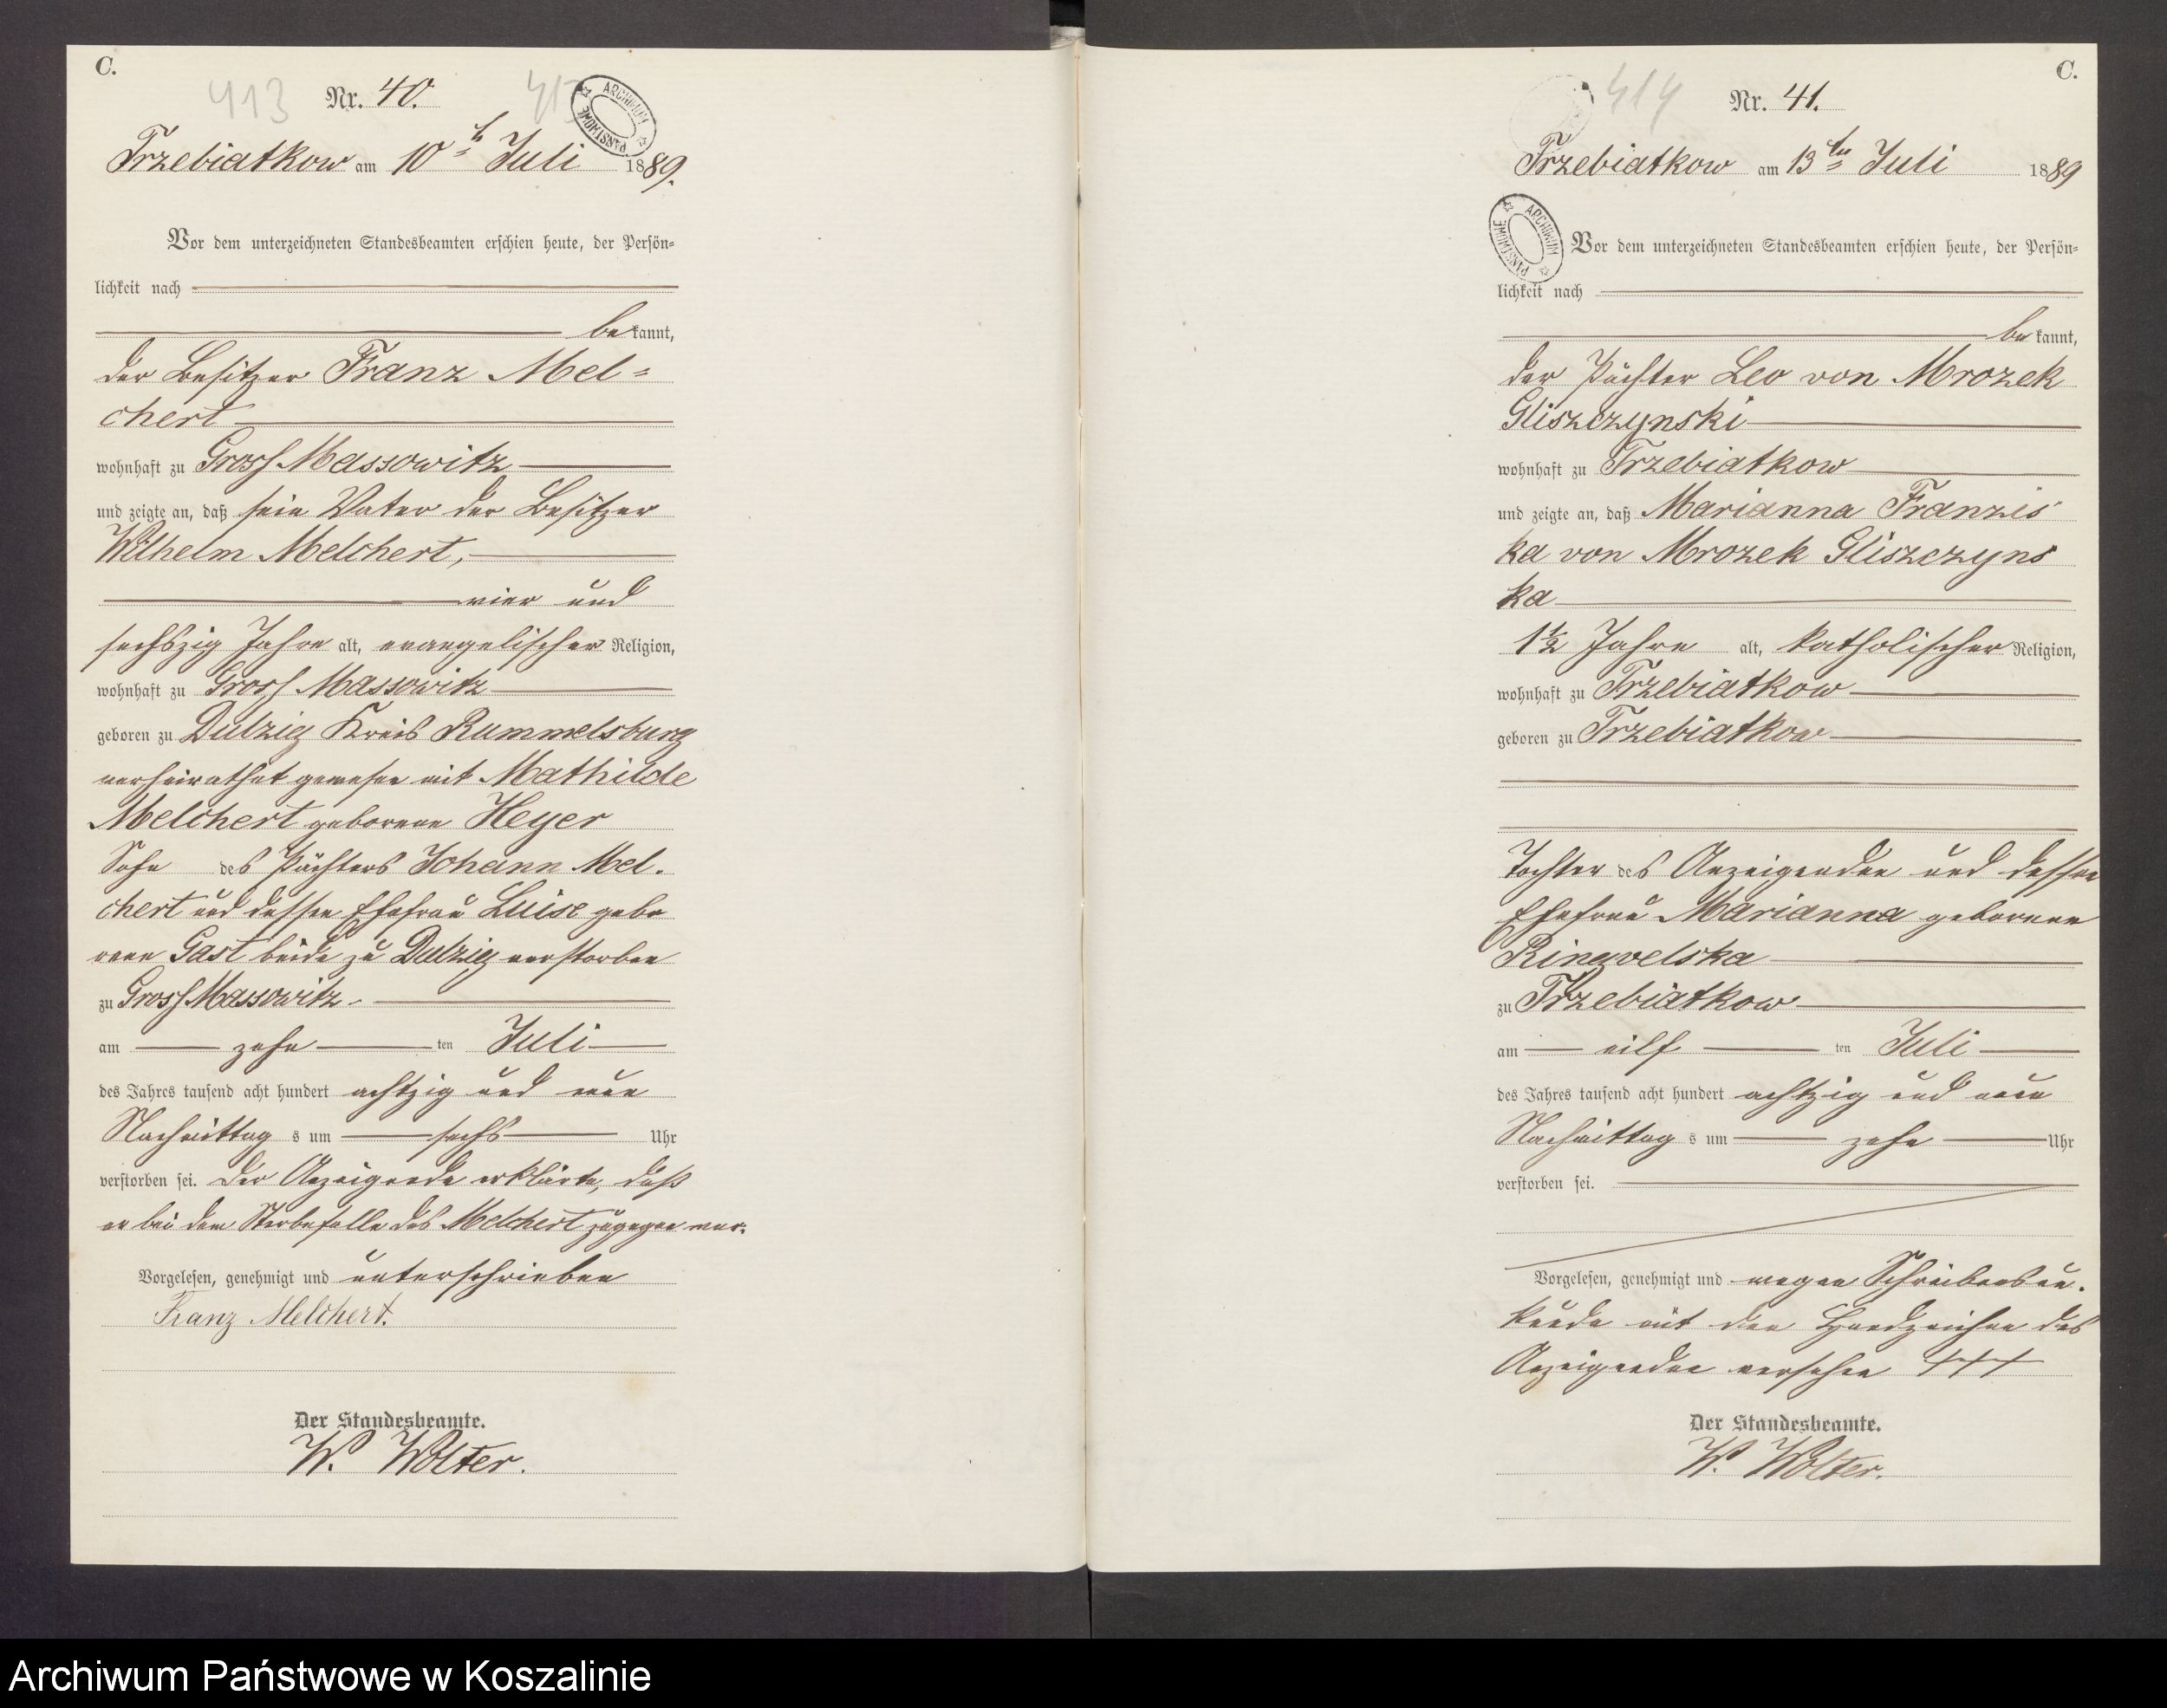 C.
413 Nr. 40.
ARCHIWUM PAŃSTWOWE
Trzebiatkow am 10ten Juli 1889.
Vor dem unterzeichneten Standesbeamten erschien heute, der Persön-
lichkeit nach
bekannt,
der Besitzer Franz Mel-
chert
wohnhaft zu Gross Massowitz
und zeigte an, daß sein Vater der Besitzer
Wilhelm Melchert,
vier und
sechszig Jahre alt, evangelischer Religion,
wohnhaft zu Gross Massowitz
geboren zu Dulzig Kreis Rummelsburg
verheirathet gewesen mit Mathilde
Melchert geborene Heyer
Sohn des Pächters Johann Mel-
chert und dessen Ehefrau Luise gebo
rene Gast beide zu Dulzig verstorben
zu Gross Massowitz
am zehn ten Juli
des Jahres tausend acht hundert achtzig und neun
Nachmittag s um sechs Uhr
verstorben sei. Der Anzeigende erklärte, daß
er bei dem Sterbefalle des Melchert zugegen war.
Vorgelesen, genehmigt und unterschrieben
Franz Melchert.
Der Standesbeamte.
W. Wolter.
C.
414 Nr. 41.
Trzebiatkow am 13ten Juli 1889
ARCHIWUM PAŃSTWOWE
Vor dem unterzeichneten Standesbeamten erschien heute, der Persön-
lichkeit nach
bekannt,
der Pächter Leo von Mrozek
Gliszczynski
wohnhaft zu Trzebiatkow
und zeigte an, daß Marianna Franzis
ka von Mrozek Gliszczyns
ka
1½ Jahre alt, katholischer Religion,
wohnhaft zu Trzebiatkow
geboren zu Trzebiatkow
Tochter des Anzeigenden und dessen
Ehefrau Marianna geborene
zu Trzebiatkow
am eilf ten Juli
des Jahres tausend acht hundert achtzig und neun
Nachmittag s um zehn Uhr
verstorben sei.
Vorgelesen, genehmigt und wegen Schreibensun-
kunde mit den Handzeichen des
Anzeigenden versehen +++
Der Standesbeamte.
W. Wolter.
Archiwum Państwowe w Koszalinie